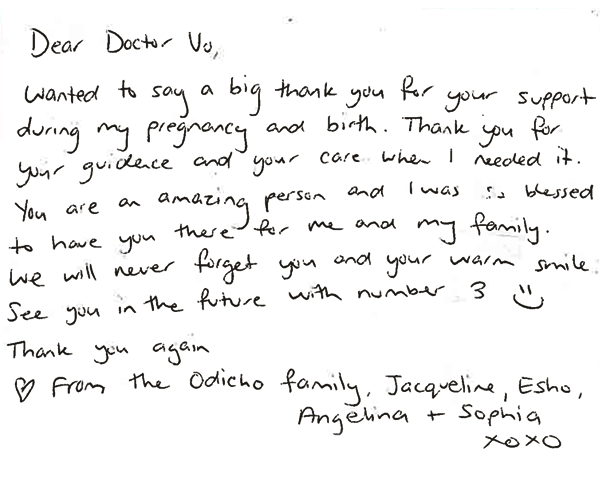 Dear Doctor Vo,
Wanted to say a big thank you for your support
during my pregnancy and birth. Thank you for
your guidence and your care when I needed it.
You are an amazing person and I was so blessed
to have you there for me and my family.
We will never forget you and your warm smile.
See you in the future with number 3 ☺
Thank you again
♡ From the Odicho family, Jacqueline, Esho,
Angelina + Sophia
xoxo